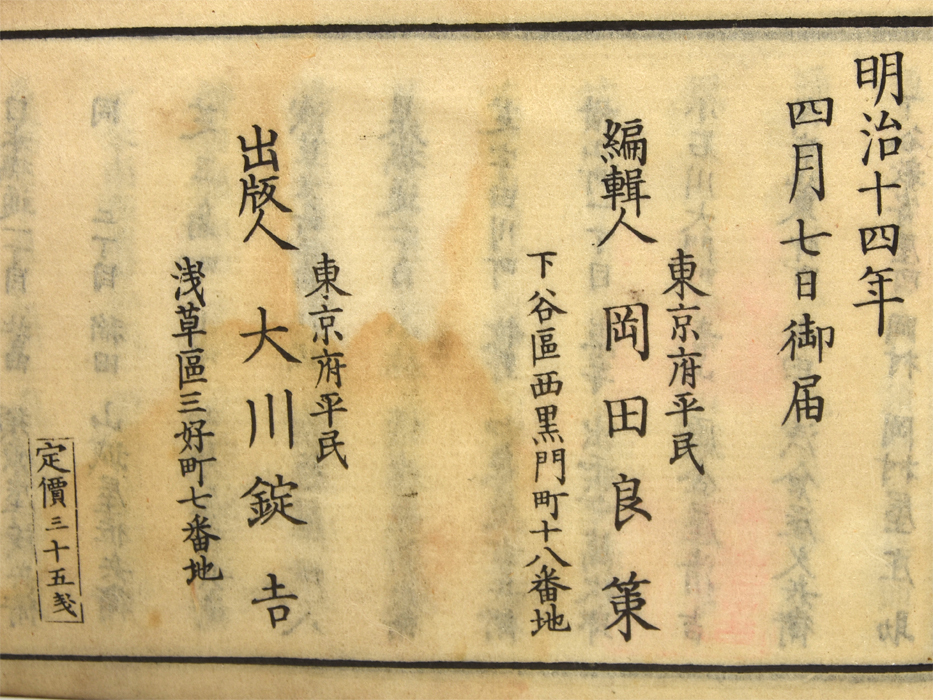 明治十四年
四月七日御届
編輯人
東京府平民
岡田良策
下谷區西黒門町十八番地
出版人
東京府平民
大川錠吉
浅草區三好町七番地
定價三十五戔